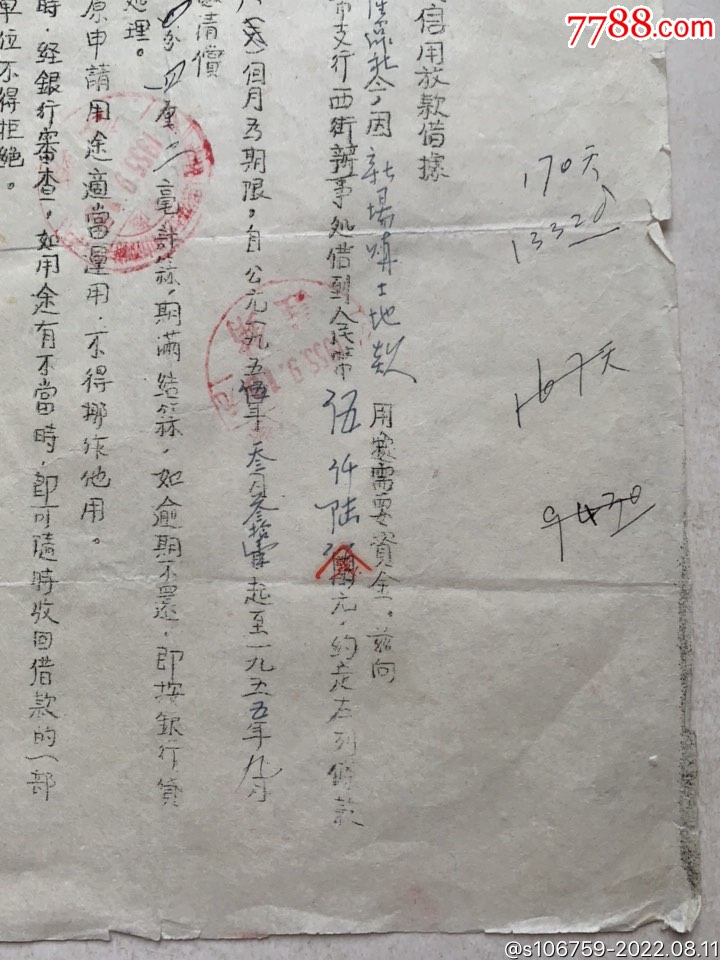 7788.com
信用放款借據
社今因新場鎮土地款 用處需要資金。茲向
市支行西街辦事処借到人民幣伍仟陸 萬元，約定左列條款
個月爲期限，自公元一九五伍年叁月叁拾壹日起至一九五五年九月
清償
四厘 毫計祘，期滿結祘，如逾期不還，即按銀行貸
処理。
原申請用途適當運用，不得挪作他用。
時，經銀行審查，如用途有不當時，即可隨時收回借款的一部
單位不得拒絶。
170天
13320
167天
9430
1955.9
1955.9
@s106759-2022.08.11